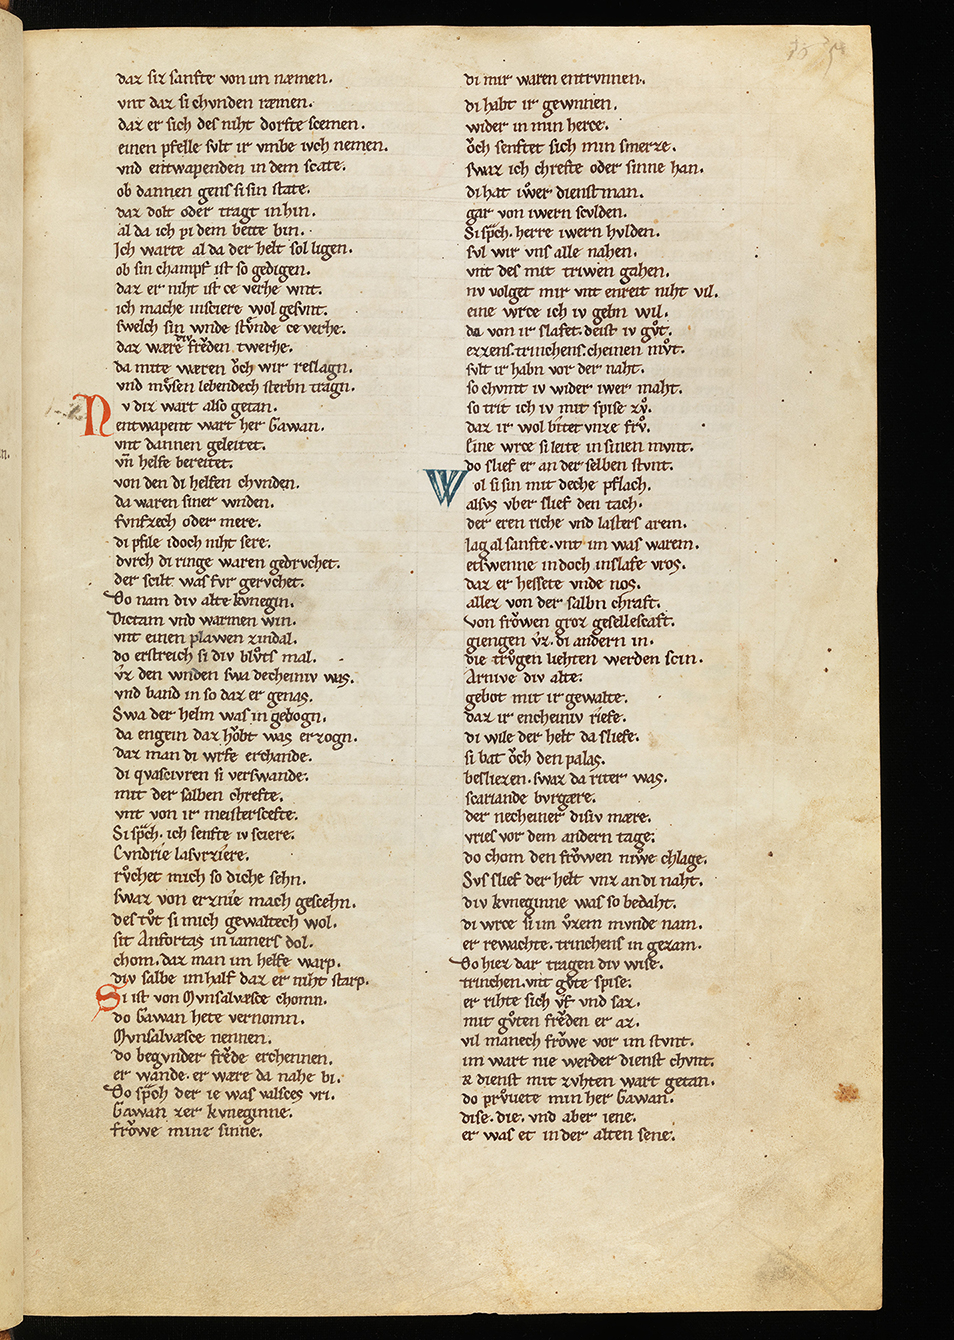 daz siz sanfte von im næmen.
vnt daz si chvnden ræmen.
daz er sich des niht dorfte scemen.
einen pfelle svlt ir vmbe ivch nemen.
vnd entwapenden in dem scate.
ob dannen gens si sin state.
daz dolt oder tragt in hin.
al da ich pi dem bette bin.
Ich warte al da der helt sol ligen.
ob sin champf ist so gedigen.
daz er niht ist ce verhe wnt.
ich mache in sciere wol gesvnt.
swelch sin wnde stvͦnde ce verhe.
daz wære div frᷓden twerhe.
da mite wæren oͮch wir reslagn.
vnd mvͤsen lebendech sterbn tragn.
Nv diz wart also getan.
entwapent wart her Gawan.
vnt dannen geleitet.
vn̄ helfe bereitet.
von den di helfen chvnden.
da waren siner wnden.
fvnfzech oder mere.
di pfile idoch niht sere.
dvrch di ringe waren gedrvchet.
der scilt was fvr gervchet.
Do nam div alte kvnegin.
Dictam vnd warmen win.
vnt einen plawen zindal.
do erstreich si div blvͦts mal.
vͦz den wnden swa decheiniv was.
vnd band in so daz er genas.
Swa der helm was in gebogn.
da engein daz hoͮbt was erzogn.
daz man di wrfe erchande.
di qvascivren si verswande.
mit der salben chrefte.
vnt von ir meisterscefte.
Si sp̄ch. ich senfte iv sciere.
Cvndrie lasvrziere.
rvͦchet mich so diche sehn.
swaz von erznie mach gescehn.
des tvͦt si mich gewaltech wol.
sit Anfortas in iamers dol.
chom. daz man im helfe warp.
div salbe im half daz er niht starp.
Si ist von Mvnsalvæsce chomn.
do Gawan hete vernomn.
Mvnsalvæsce nennen.
do begvnder frᷓde erchennen.
er wande. er wære da nahe bi.
Do sp̄ch der ie was valsces vri.
Gawan zer kvneginne.
froͮwe mine sinne.
di mir waren entrvnnen.
di habt ir gewnnen.
wider in min herce.
oͮch senftet sich min smerze.
swaz ich chrefte oder sinne han.
di hat iwer dienstman.
gar von iwern scvlden.
Si sp̄ch. herre iwern hvlden.
svl wir vns alle nahen.
vnt des mit triwen gahen.
nv volget mir vnt enreit niht vil.
eine wrce ich iv gebn wil.
da von ir slafet. deist iv gvͦt.
ezzens. trinchens. cheinen mvͦt.
svlt ir habn vor der naht.
so chvmt iv wider iwer maht.
so trit ich iv mit spise zvͦ.
daz ir wol bitet vnze frvͦ.
Eine wrce si leite in sinen mvnt.
do slief er an der selben stvnt.
Wol si sin mit deche pflach.
alsvs vber slief den tach.
der eren riche vnd lasters arem.
lag al sanfte. vnt im was warem.
etswenne in doch in slafe vros.
daz er hescete vnde nos.
allez von der salbn chraft.
von froͮwen groz gesellescaft.
giengen vͦz. di andern in.
die trvͦgen liehten werden scin.
Arnive div alte.
gebot mit ir gewalte.
daz ir encheiniv riefe.
di wile der helt da sliefe.
si bat oͮch den palas.
besliezen. swaz da riter was.
scariande bvrgære.
der necheiner disiv mære.
vries vor dem andern tage.
do chom den froͮwen niwe chlage.
Svs slief der helt vnz an di naht.
div kvneginne was so bedaht.
di wrce si im vͦzem mvnde nam.
er rewachte. trinchens in gezam.
Do hiez dar tragen div wise.
trinchen. vnt gvͦte spise.
er rihte sich vͦf vnd saz.
mit gvͦten frᷓden er az.
vil manech froͮwe vor im stvnt.
im wart nie werder dienst chvnt.
er dienst mit zvhten wart getan.
do prvͦuete min her Gawan.
dise. die. vnd aber iene.
er was et in der alten sene.